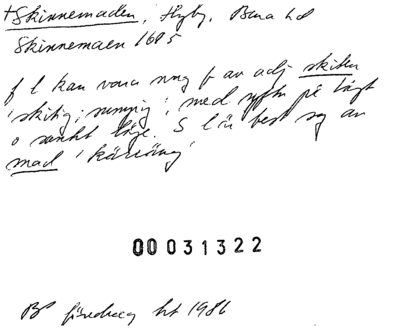 †Skinnemaden, Hyby, Bara hd
Skinnemaen 1685
f l kan vara nng f av adj skiten
'skitig; sumpig', med syftn på lågt
o sankt läge. S l är best sg av
mad 'kärräng'
00 031322
BP föredrag ht 1986